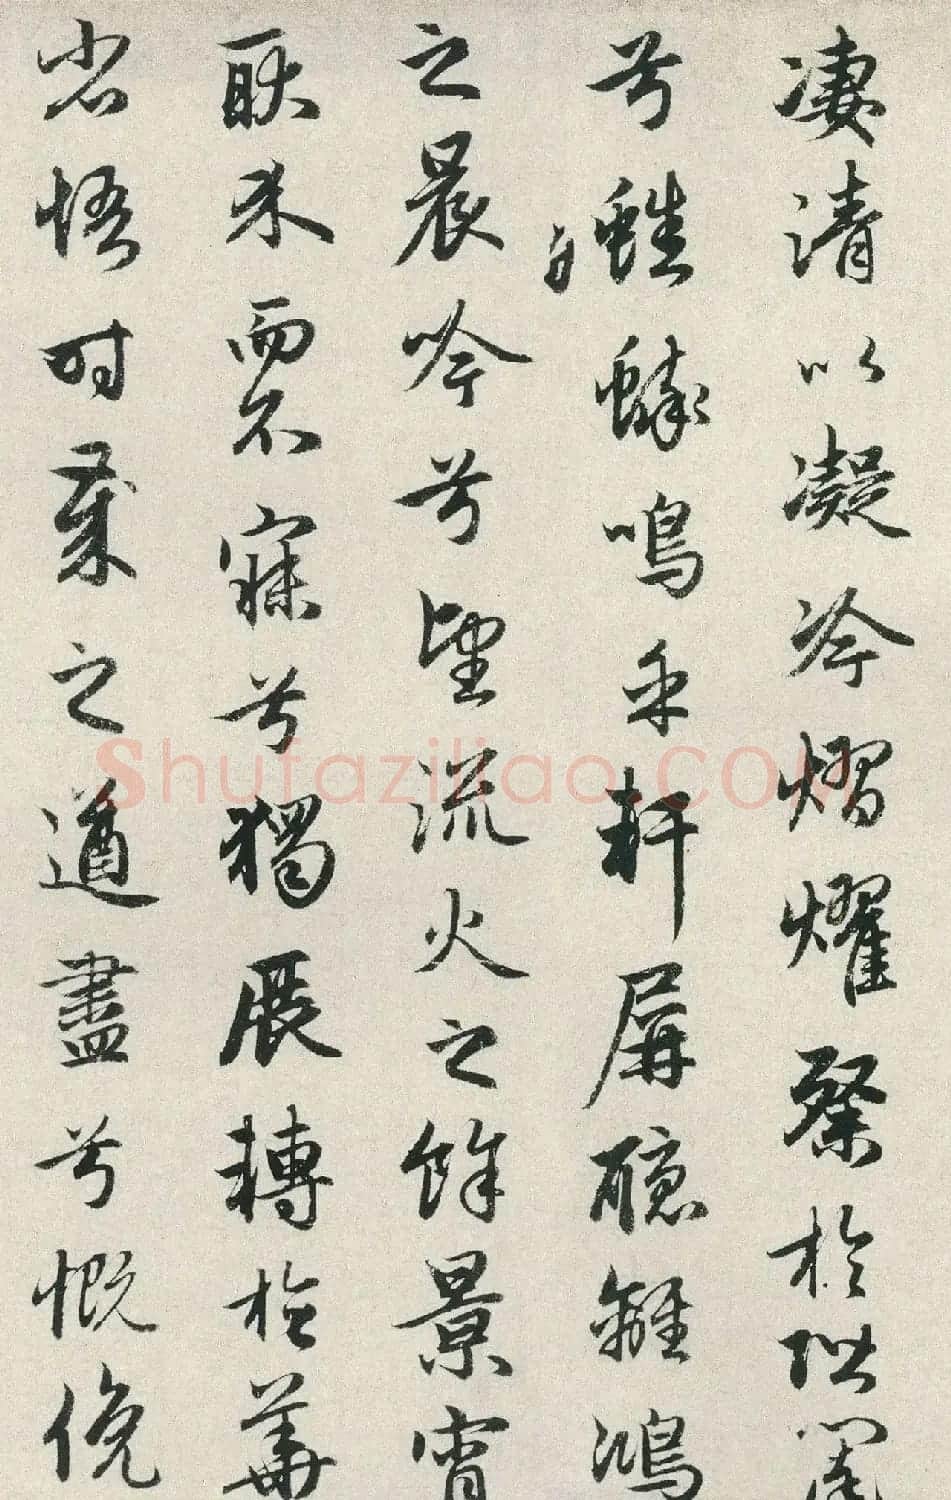 凄清以凝冷熠燿粲於階闥
兮蟀鳴乎軒屏聽離鴻
之晨吟兮望流火之餘景宵
耿介而不寐兮獨展轉於華
省悟時歲之遒盡兮慨俛
Shufaziliao.COM